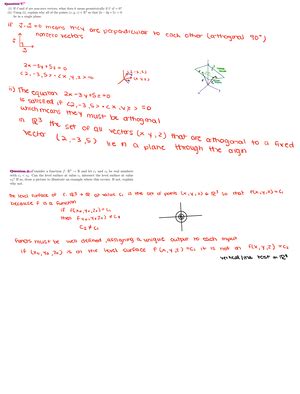 Question 1:
(i) If v⃗ and w⃗ are nonzero vectors, what does it mean geometrically if v⃗ · w⃗ = 0?
(ii) Using (i), explain why all of the points (x, y, z) ∈ R³ so that 2x − 3y + 5z = 0 lie in a single plane.
i) if v⃗ · w⃗ = 0 means they are perpendicular to each other (orthogonal 90°)
nonzero vectors
2x - 3y + 5z = 0
<2, -3, 5> · <x, y, z> = 0
ii) The equation 2x - 3y + 5z = 0
is satisfied if <2, -3, 5> · <x, y, z> = 0
which means they must be orthogonal
in R³ the set of all vectors (x y, z) that are orthogonal to a fixed
vector (2, -3, 5) lie in a plane through the origin
Question 2: Consider a function f : R³ → R and let c₁ and c₂ be real numbers
with c₁ ≠ c₂. Can the level surface at value c₁ intersect the level surface at value
c₂? If so, draw a picture to illustrate an example where this occurs. If not, explain
why not.
The level surface of f: R³ → R at value c₁ is the set of points (x, y, z) ∈ R³ so that f(x, y, z) = c₁
because f is a function
if f(x₀, y₀, z₀) = c₁
then f(x₀, y₀, z₀) ≠ c₂
c₂ ≠ c₁
Functions must be well defined, assigning a unique output to each input
if (x₀, y₀, z₀) is on the level surface f(x, y, z) = c₁ it is not on f(x, y, z) = c₂
vertical line test in R⁴